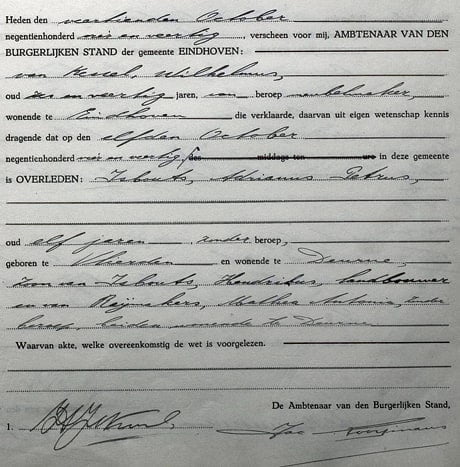 Heden den veertienden October
negentienhonderd vier en veertig, verscheen voor mij, AMBTENAAR VAN DEN
BURGERLIJKEN STAND der gemeente EINDHOVEN:
van Kessel, Wilhelmus,
oud zes en veertig jaren, van beroep meubelmaker,
wonende te Eindhoven die verklaarde, daarvan uit eigen wetenschap kennis
dragende dat op den elfden October
negentienhonderd vier en veertig, des middags ten ure in deze gemeente
is OVERLEDEN: Isbouts, Adrianus Petrus,
oud elf jaren zonder beroep,
geboren te Vlierden en wonende te Deurne,
zoon van Isbouts, Hendrikus, landbouwer
en van Reijnskers, Mathea Antonia, zonder
beroep, beiden wonende te Deurne
Waarvan akte, welke overeenkomstig de wet is voorgelezen.
De Ambtenaar van den Burgerlijken Stand,
1.